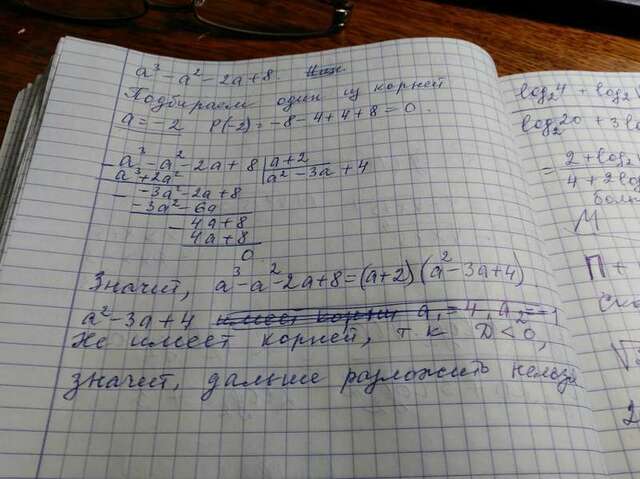 a³ - a² - 2a + 8.
Подбираем один из корней
a = -2 P(-2) = -8 - 4 + 4 + 8 = 0.
a³ - a² - 2a + 8 | a + 2
a³ + 2a² a² - 3a + 4
-3a² - 2a + 8
-3a² - 6a
4a + 8
4a + 8
0
Значит, a³ - a² - 2a + 8 = (a + 2)(a² - 3a + 4)
a² - 3a + 4 имеет корни a₁ = 4, a₂ = -1
Не имеет корней, т.к. D < 0,
значит, дальше разложить нельзя
log₂4 + log₂
log₂20 + 3
= 2 + log₂
4 + 2log
М
П +
√
2